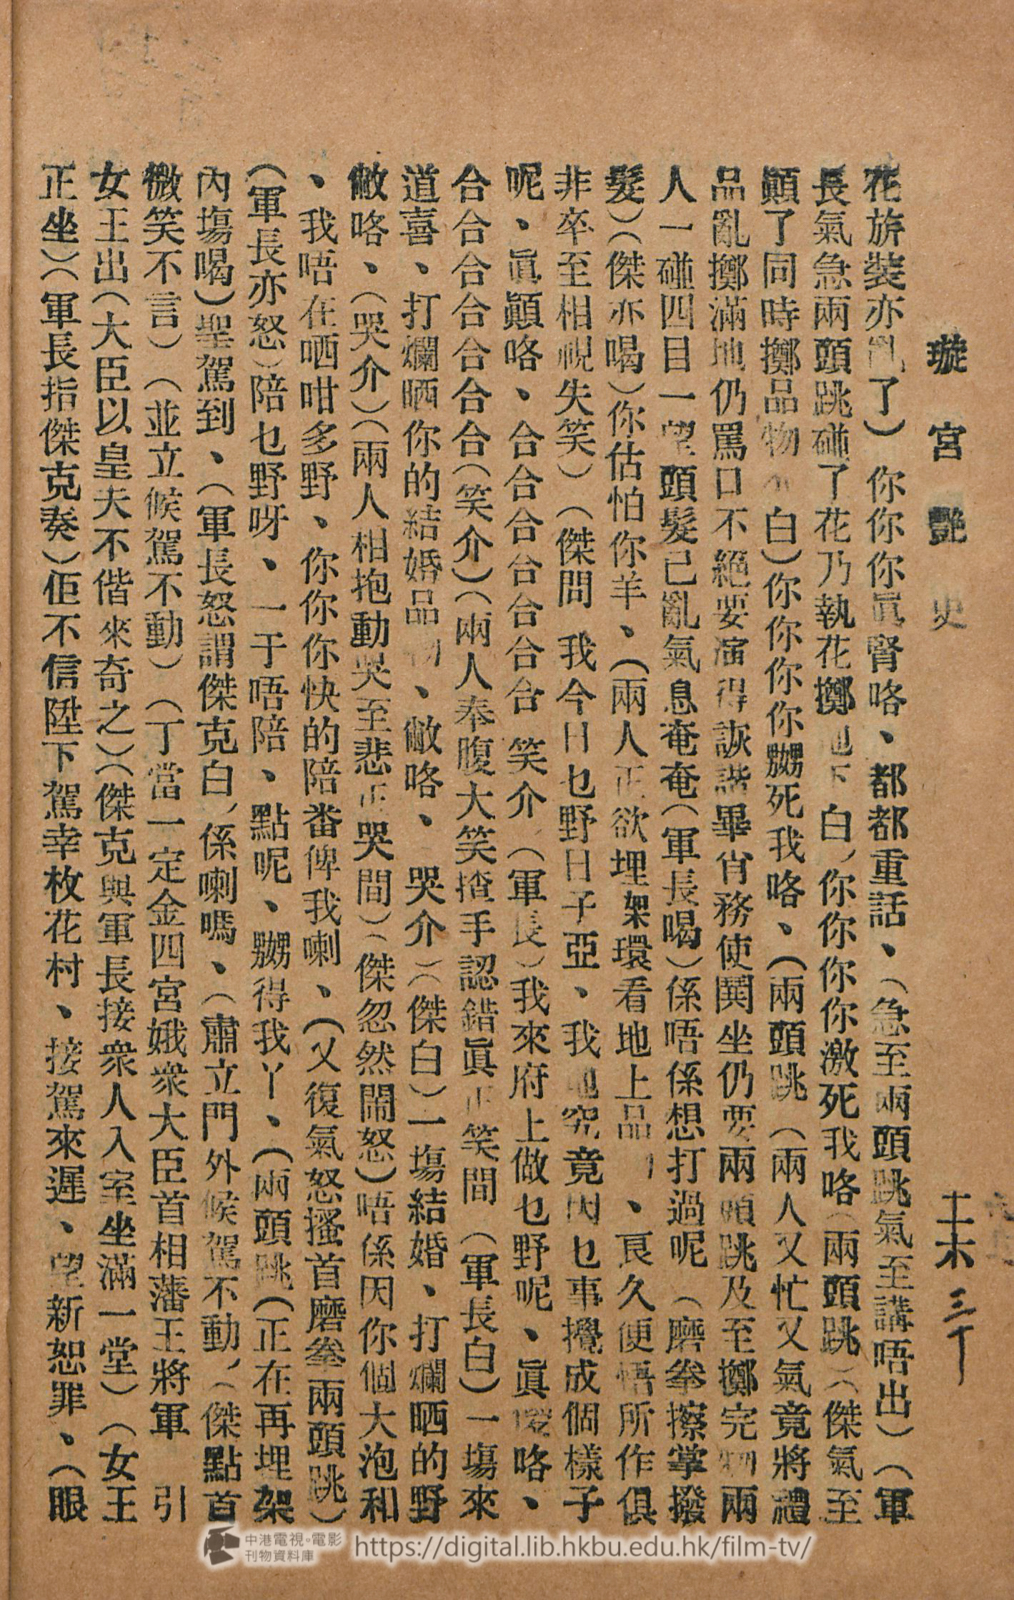 璇宮艷史
花旂裝亦亂了）你你你眞腎咯、都都重話、（急至兩頭跳氣至講唔出）（軍
長氣急兩頭跳碰了花乃執花擲地下白，你你你你激死我咯（兩頭跳）（傑氣至
顚了同時擲品物 白）你你你你嬲死我咯、（兩頭跳（兩人又忙又氣竟將禮
品亂擲滿地仍罵口不絕要演得詼諧畢肖務使鬨坐仍要兩頭跳及至擲完物兩
人一碰四目一望頭髮已亂氣息奄奄（軍長喝）係唔係想打過呢（磨拳擦掌撥
髮）（傑亦喝）你估怕你羊、（兩人正欲埋架環看地上品 、良久便悟所作俱
非卒至相視失笑）（傑問 我今日乜野日子亞、我哋究竟因乜事攪成個樣子
呢、眞顚咯、合合合合合合 笑介（軍長）我來府上做乜野呢、眞 咯、
合合合合合合合（笑介）（兩人奉腹大笑揸手認錯眞正笑間（軍長白）一塲來
道喜、打爛晒你的結婚品物、敝咯、哭介）（傑白）一塲結婚、打爛晒的野
敝咯、（哭介）（兩人相抱動哭至悲正哭間）（傑忽然鬧怒）唔係因你個大泡和
、我唔在哂咁多野、你你你快的陪番俾我喇、（又復氣怒搔首磨拳兩頭跳）
（軍長亦怒）陪乜野呀、一于唔陪、點呢、嬲得我丫、（兩頭跳（正在再埋架
內塲喝）聖駕到、（軍長怒謂傑克白，係喇嗎、（肅立門外候駕不動，（傑點首
微笑不言）（並立候駕不動）（丁當一定金四宮娥衆大臣首相藩王將軍 引
女王出（大臣以皇夫不偕來奇之）（傑克與軍長接衆人入室坐滿一堂）（女王
正坐）（軍長指傑克奏）佢不信陞下駕幸枚花村、接駕來遲、望新恕罪、（眼
中港電視。電影
刊物資料庫
https://digital.lib.hkbu.edu.hk/film-tv/